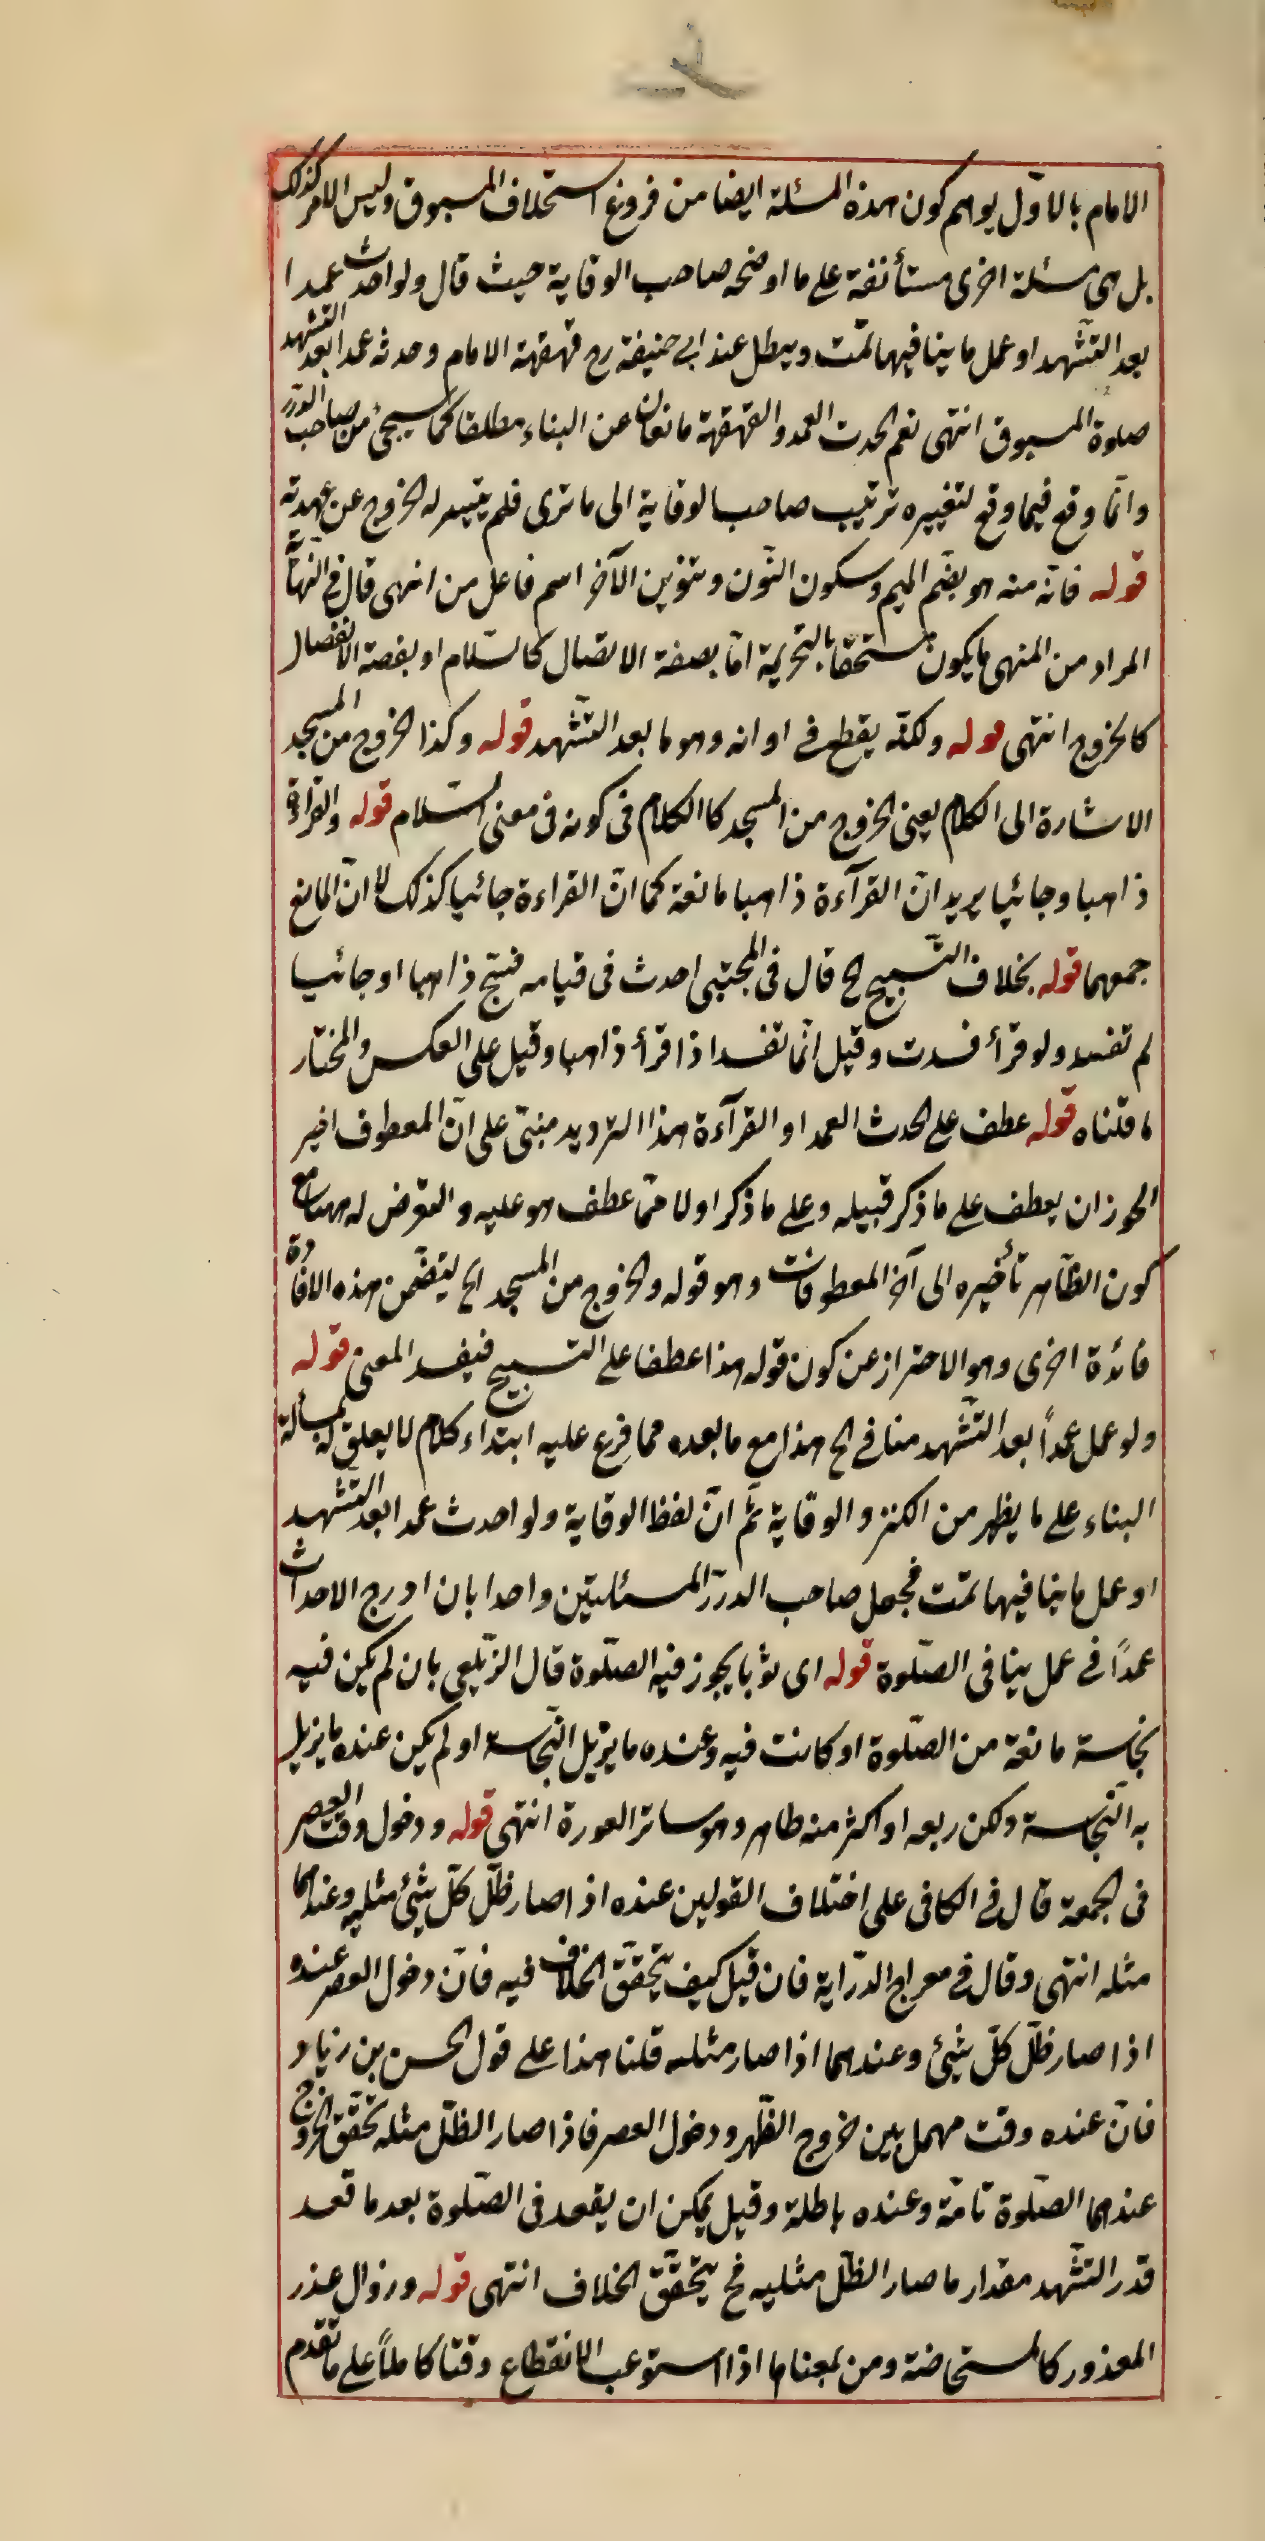 الامام بالاوّل يوهم كون هذه المسئلة ايضا من فروع استخلاف المسبوق وليس الامر كذلك
بل هي مسئلة اخرى مستأنفة على ما اوضحه صاحب الوقاية حيث قال ولو احدث عمدا
بعد التشّهد او عمل ما ينافيها تمّت ويبطل عند ابي حنيفة رح قهقهة الامام وحدثه عمدا بعد التشهد
صلوة المسبوق انتهى نعم الحدث العمد والقهقهة مانعان عن البناء مطلقا كما سيجئ من صاحب الدّرر
وانّما وقع فيما وقع لتغييره ترتيب صاحب الوقاية الى ما ترى فلم يتيسر له الخروج عن عهدته
قوله فانّه منه هو بضم الميم وسكون النّون وتنوين الآخر اسم فاعل من انهى قال في النهاية
المراد من المنهى ما يكون مستحقا بالتحريمة امّا بصفة الاتصال كالسّلام او بغصة الانفصال
كالخروج انتهى قوله ولكنّه يقطع في اوانه وهو ما بعد التّشهد قوله وكذا الخروج من المسجد
الاشارة الى الكلام يعنى الخروج من المسجد كالكلام فى كونه فى معنى السّلام قوله والقراءة
ذاهبا وجائيا يريد انّ القرآءة ذاهبا مانعة كما انّ القراءة جائيا كذلك لا انّ المانع
جمعهما قوله بخلاف التّسبيح الخ قال فى المجتبى احدث فى قيامه فسبّح ذاهبا او جائيا
لم تفسد ولو قرأ فسدت وقيل انّما تفسد اذا قرأ ذاهبا وقيل على العكس والمختار
ما قلناه قوله عطف على الحدث العمد او القرآءة هذا الترديد مبنىّ على انّ المعطوف اخير
الجوز ان يعطف على ما ذكر قبيله وعلى ما ذكر اولا ممّا عطف هو عليه والتعرض له ههنا مع
كون الظّاهر تأخيره الى آخر المعطوفات وهو قوله والخروج من المسجد الخ ليتضّمن هذه الافادة
فائدة اخرى وهو الاحتراز عن كون قوله هذا عطفا على التسبيح فيفسد المعنى قوله
ولو عمل عمداً بعد التّشهد منافى الخ هذا مع ما بعده مما فرع عليه ابتداء كلام لا تعلق له بمسألة
البناء على ما يظهر من الكنز والوقاية ثم انّ لفظ الوقاية ولو احدث عمدا بعد التشهد
او عمل ما ينافيها تمّت فجعل صاحب الدرر المسئلتين واحدا بان ادرج الاحداث
عمداً في عمل ينافى الصّلوة قوله اى ثوبا يجوز فيه الصّلوة قال الزّيلعى بان لم يكن فيه
نجاسة مانعة من الصّلوة او كانت فيه وعنده ما يزيل النّجاسة او لم يكن عنده ما يزيل
به النّجاسة ولكن ربعه او اكثر منه طاهر وهو ساتر العورة انتهى قوله ودخول وقت العصر
فى الجمعة قال في الكافى على اختلاف القولين عنده اذا صار ظلّ كلّ شئ مثليه وعندهما
مثله انتهى وقال في معراج الدّراية فان قيل كيف يتحقّق الخلاف فيه فانّ دخول العصر عنده
اذا صار ظلّ كلّ شئ وعندهما اذا صار مثله قلنا هذا على قول الحسن بن زياد
فانّ عنده وقت مهمل بين خروج الظّهر ودخول العصر فاذا صار الظّل مثله تحقّق الخروج
عندهما الصّلوة تامّة وعنده باطلة وقيل يمكن ان يقعد فى الصّلوة بعد ما قعد
قدر التشّهد مقدار ما صار الظّل مثليه فح يتحقّق الخلاف انتهى قوله وزوال عذر
المعذور كالمستحاضة ومن بمعناها اذا استوعب الانقطاع وقتا كاملاً على ما تقدم